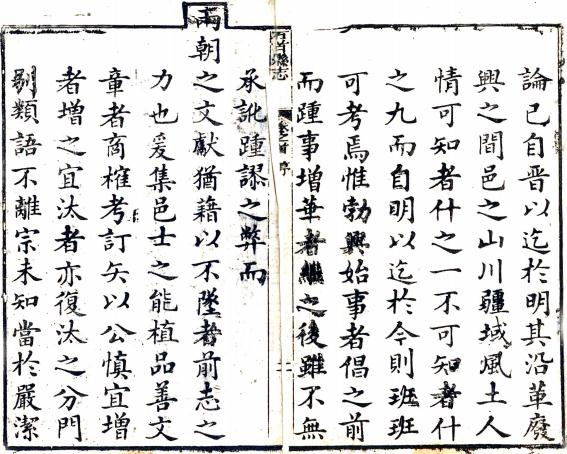 論已自晋以迄於明其沿革廢
興之間邑之山川疆域風土人
情可知者什之一不可知者什
之九而自明以迄於今則班班
可考焉惟勃興始事者倡之前
而踵事增華者繼之後雖不無
石首縣志
序
承訛踵謬之弊而
兩朝之文獻猶藉以不墜者前志之
力也爰集邑士之能植品善文
章者商榷考訂矣以公慎宜增
者增之宜汰者亦復汰之分門
剔類語不離宗未知當於嚴潔